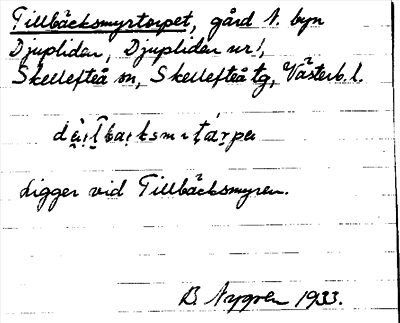 Tillbäcksmyrtorpet, gård N. byn
Djuplidan, Djuplidan nr 1,
Skellefteå sn, Skellefteå tg, Västerb. l.
Ligger vid Tillbäcksmyren.
B. Nygren 1933.